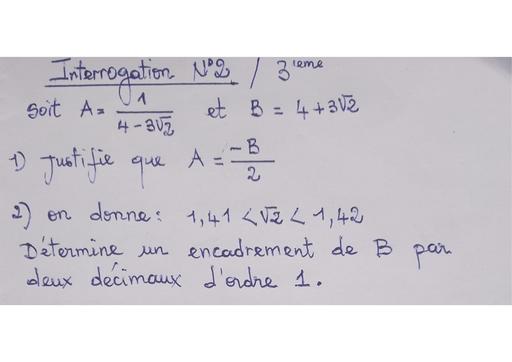 Interrogation N°2 / 3ieme
Soit A = 1/(4-3√2) et B = 4+3√2
1) Justifie que A = -B/2
2) on donne : 1,41 < √2 < 1,42
Détermine un encadrement de B par
deux décimaux d'ordre 1.